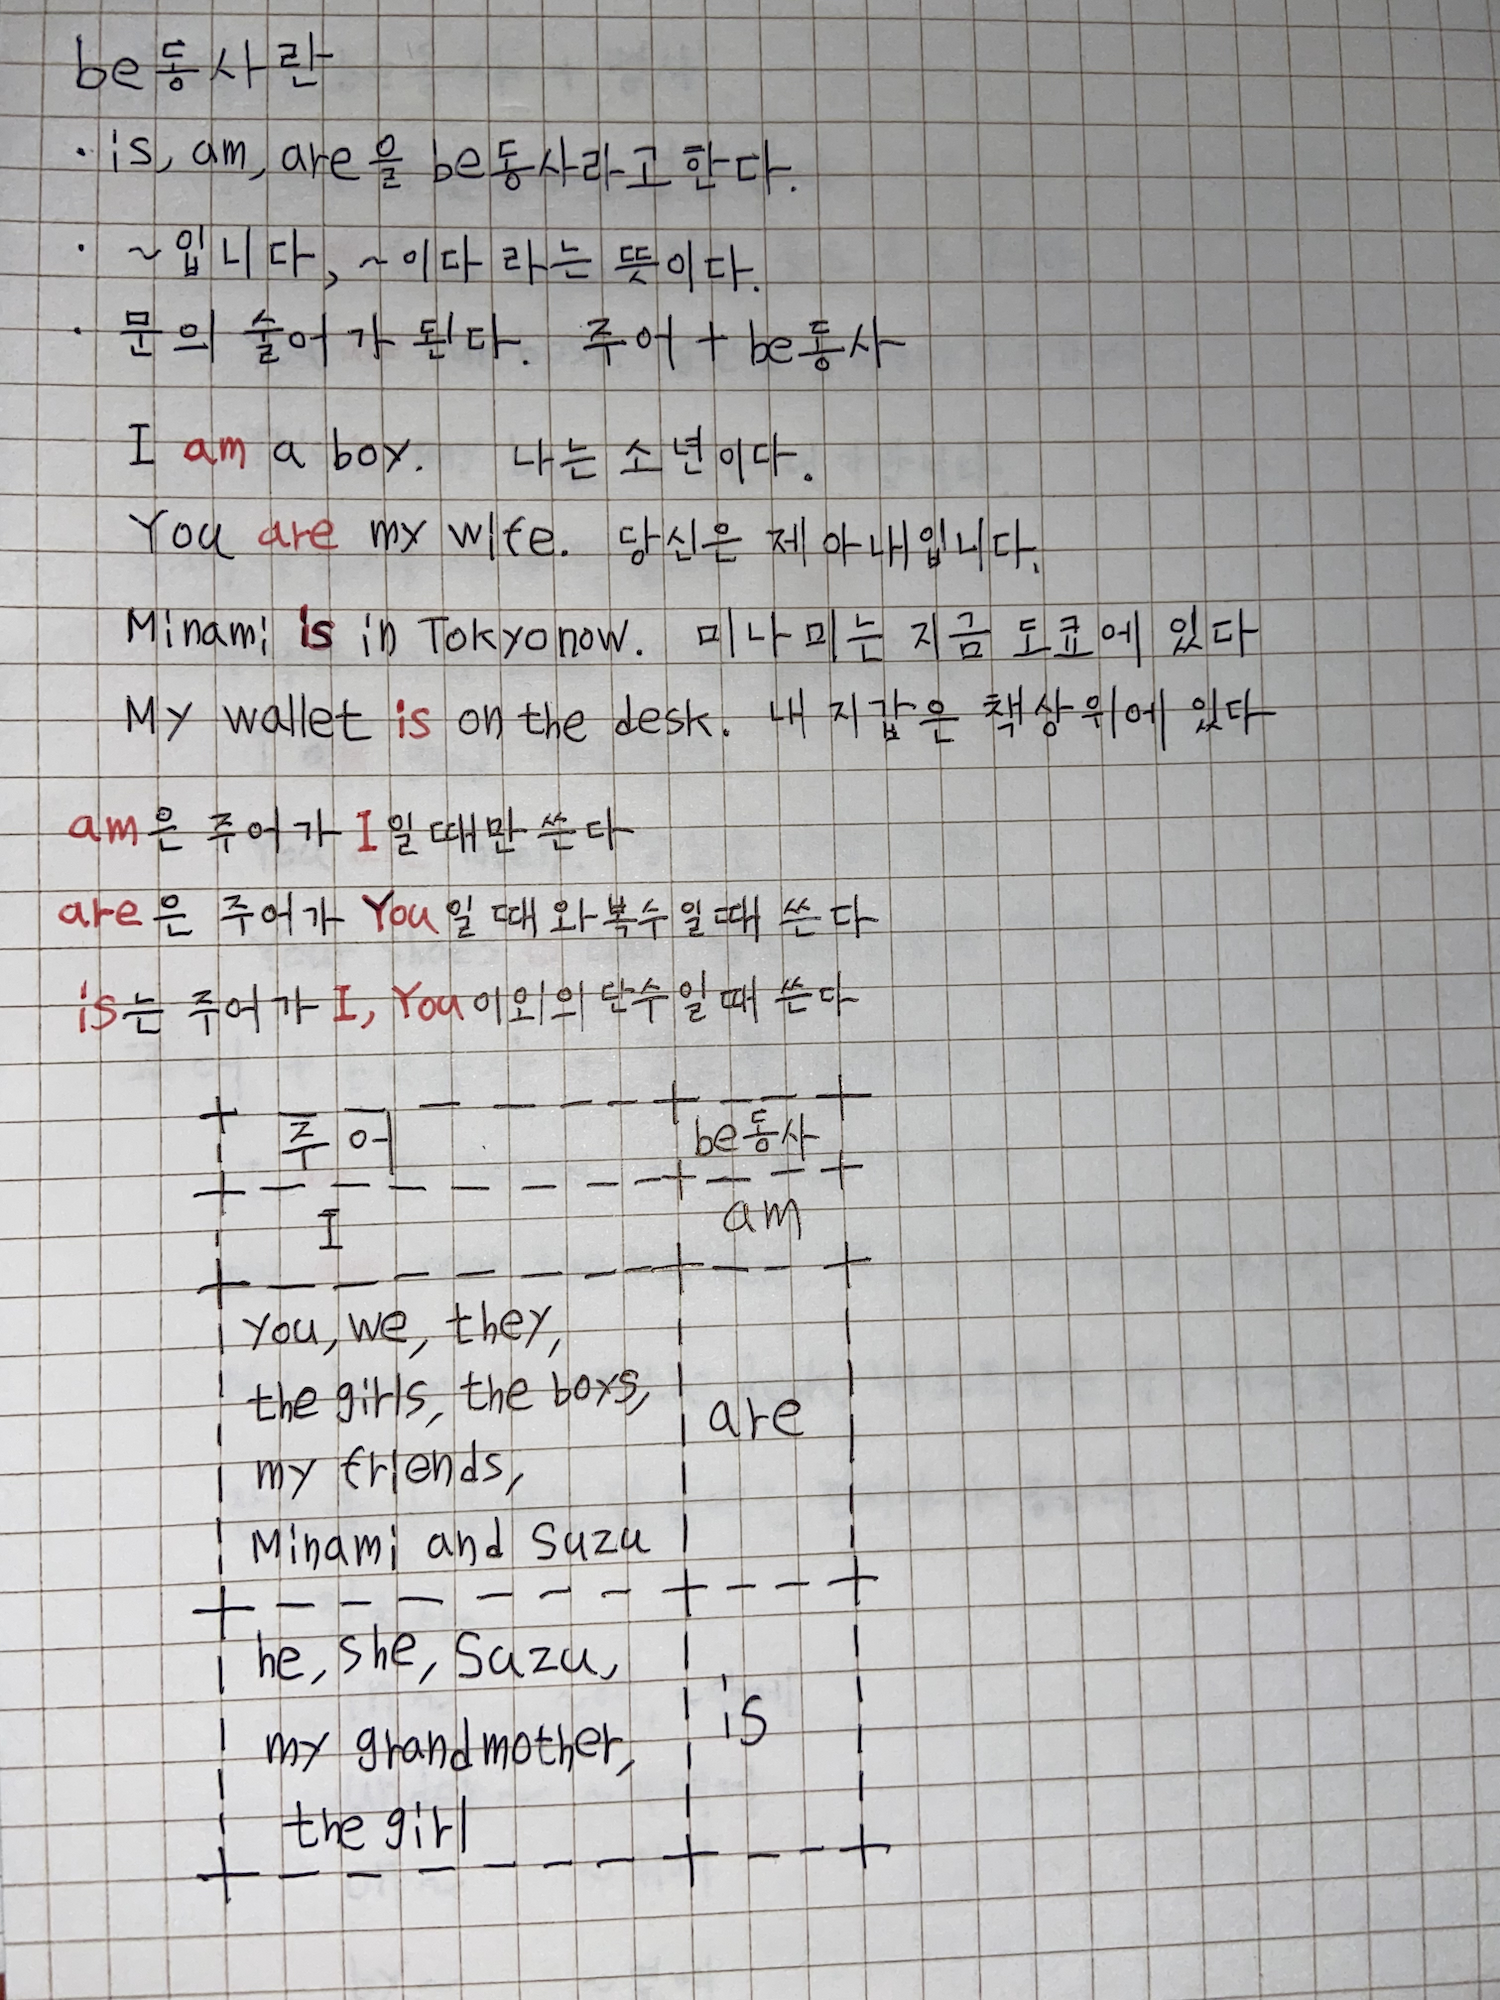 be동사란
· is, am, are을 be동사라고 한다.
· ~입니다, ~이다 라는 뜻이다.
· 문의 술어가 된다. 주어 + be동사
I am a boy. 나는 소년이다.
You are my wife. 당신은 제 아내입니다.
Minami is in Tokyo now. 미나미는 지금 도쿄에 있다
My wallet is on the desk. 내 지갑은 책상위에 있다
am은 주어가 I일때만 쓴다
are은 주어가 You일 때와 복수일때 쓴다
is는 주어가 I, You이외의 단수일때 쓴다
주어 be동사
I am
you, we, they,
the girls, the boys,
are
my friends,
Minami and Suzu
he, she, Suzu,
is
my grandmother,
the girl